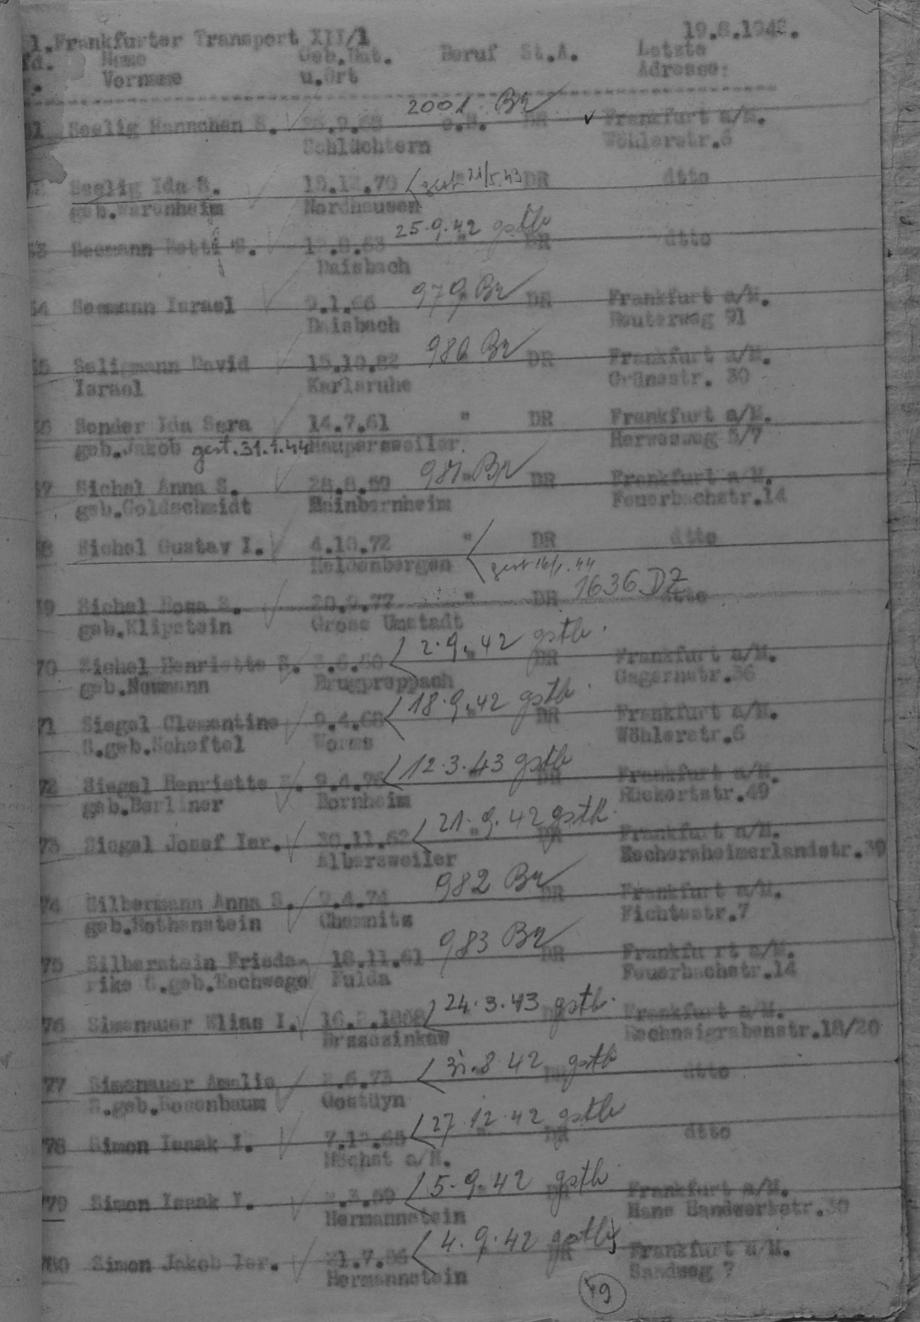 1.Frankfurter Transport XII/1 19.8.1942.
Name Geb.Dat. Beruf St.A. Letzte
Vorname u.Ort Adresse:
Seelig Hannchen S. 2001. Br DR Frankfurt a/M.
Schlüchtern Wöhlerstr.6
Seelig Ida S. 15.12.70 gest 21/5.43 DR dtto
geb.Warenheim Nordhausen
Seemann Betti S. 25.9.42 gstb DR dtto
Daisbach
64 Seemann Israel 9.1.66 979 Br DR Frankfurt a/M.
Daisbach Reuterweg 91
65 Seligmann David 15.10.82 980 Br DR Frankfurt a/M.
Israel Karlsruhe Grünestr. 30
66 Sender Ida Sara 14.7.61 " DR Frankfurt a/M.
geb.Jakob gest.31.1.44 Haupersweiler Hermesweg 5/7
67 Sichel Anna S. 28.8.69 981 Br DR Frankfurt a/M.
geb.Goldschmidt Mainbernheim Feuerbachstr.14
68 Sichel Gustav I. 4.10.72 " DR dtto
Heldenbergen gest 16/1.44
69 Sichel Rosa S. 20.9.77 " DR 1636 DZ dtto
geb.Klipstein Gross Umstadt
70 Sichel Henriette S. 2.9.42 gstb. DR Frankfurt a/M.
geb.Neumann Burgpreppach Gagernstr.36
71 Siegel Clementine 9.4.68 18.9.42 gstb. DR Frankfurt a/M.
S.geb.Scheftel Worms Wöhlerstr.6
72 Siegel Henriette 12.3.43 gstb DR Frankfurt a/M.
geb.Berliner Bornheim Rückertstr.49
73 Siegel Josef Isr. 30.11.62 21.9.42 gstb. DR Frankfurt a/M.
Albersweiler Eschersheimerlandstr.39
74 Silbermann Anna S. 9.4.74 982 Br DR Frankfurt a/M.
geb.Rothenstein Chemnitz Fichtestr.7
75 Silberstein Friede- 18.11.61 983 Br DR Frankfu rt a/M.
rike S.geb.Eschwege Fulda Feuerbachstr.14
76 Simenauer Elias I. 16.2.1868 24.3.43 gstb. DR Frankfurt a/M.
Brzezinkaw Rechneigrabenstr.18/20
77 Simenauer Amalie 31.8.42 gstb dtto
S.geb.Rosenbaum Gostüyn
78 Simon Isaak I. 27.12.42 gstb DR dtto
Höchst a/M.
79 Simon Isaak I. 5.9.42 gstb. DR Frankfurt a/M.
Hermannstein Hans Handwerkstr.30
780 Simon Jakob Isr. 4.9.42 gstb DR Frankfurt a/M.
Hermannstein Sandweg 7
49